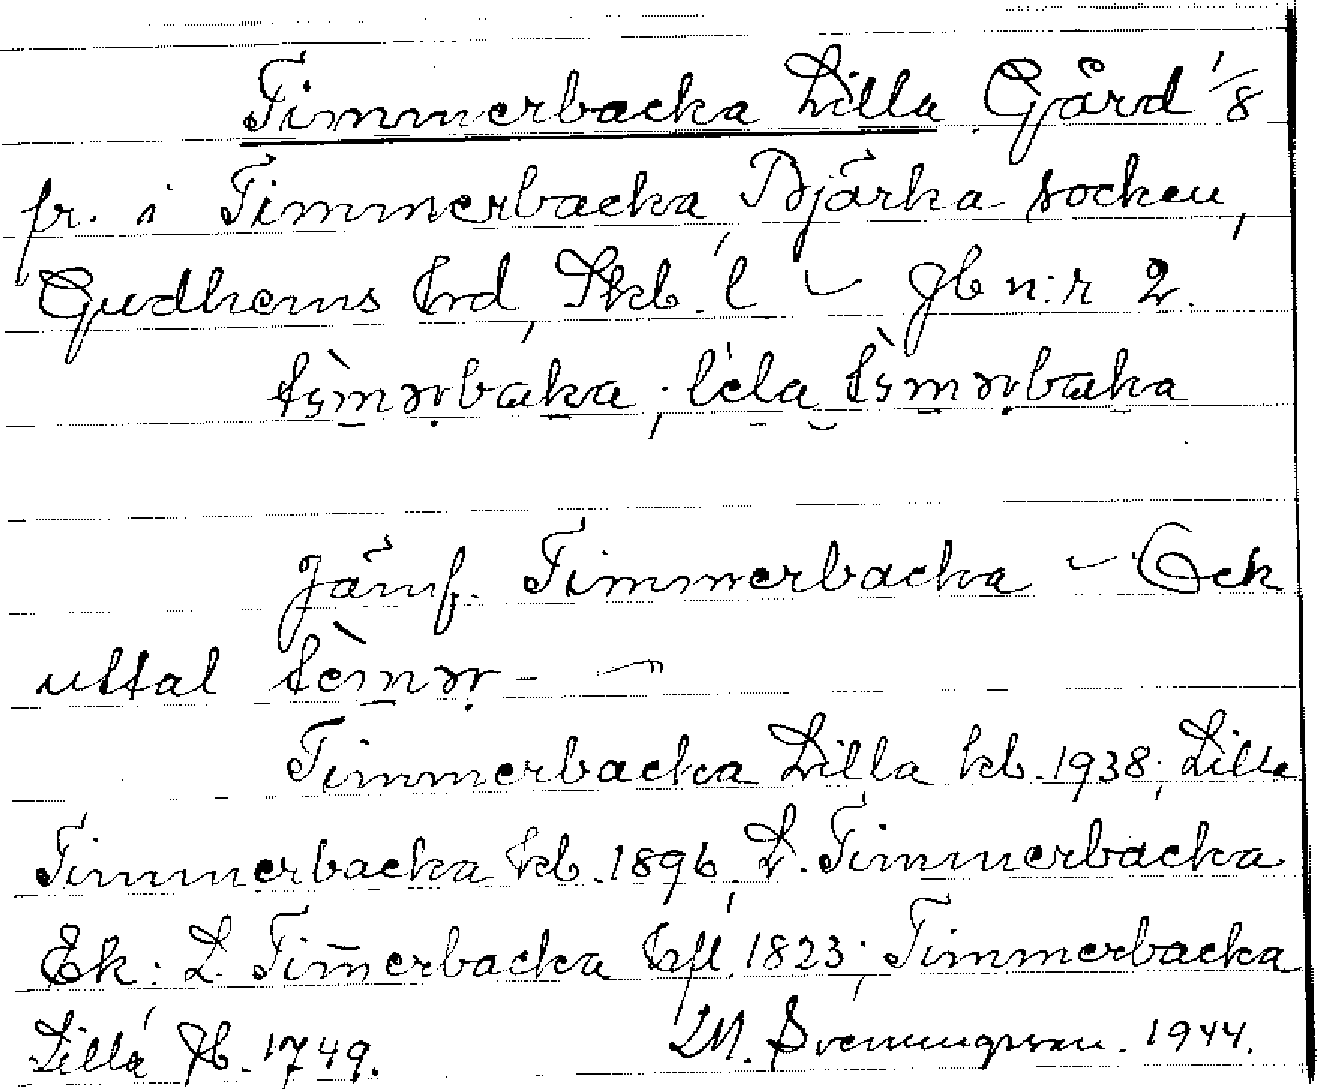 Timmerbacka Lilla Gård 1/8
fr. i Timmerbacka, Bjärka socken,
Gudhems hrd, Skb. l. – Jb n:r 2.
tìmərbaka; lela tìmərbaka
Jämf. Timmerbacka – Ock
uttal tèmər-
Timmerbacka Lilla kb. 1938; Lilla
Timmerbacka kb. 1896, L. Timmerbacka
Ek; L. Tim̄erbacka hfl. 1823; Timmerbacka
Lilla Jb. 1749. M. Svenungsson. 1944.